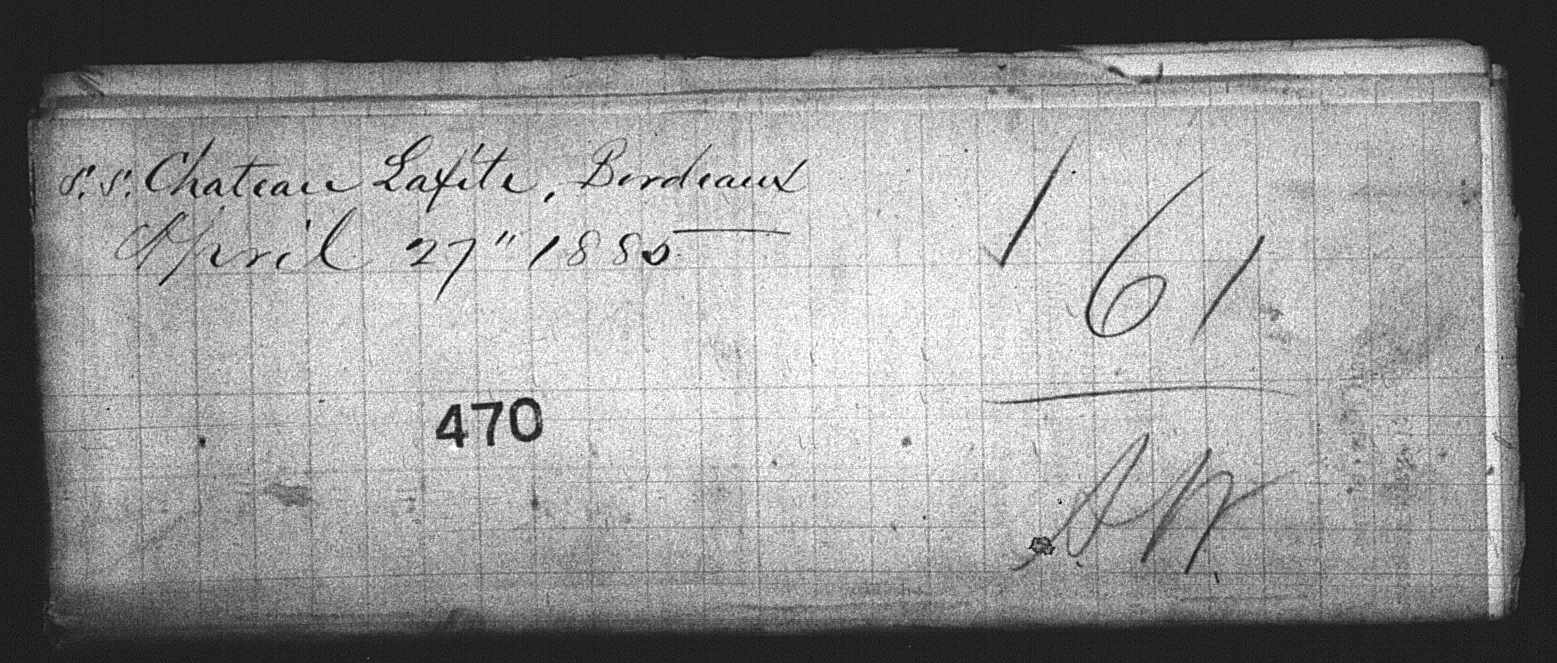 S.S. Chateau Lafite, Bordeaux
April 27" 1885
61
470